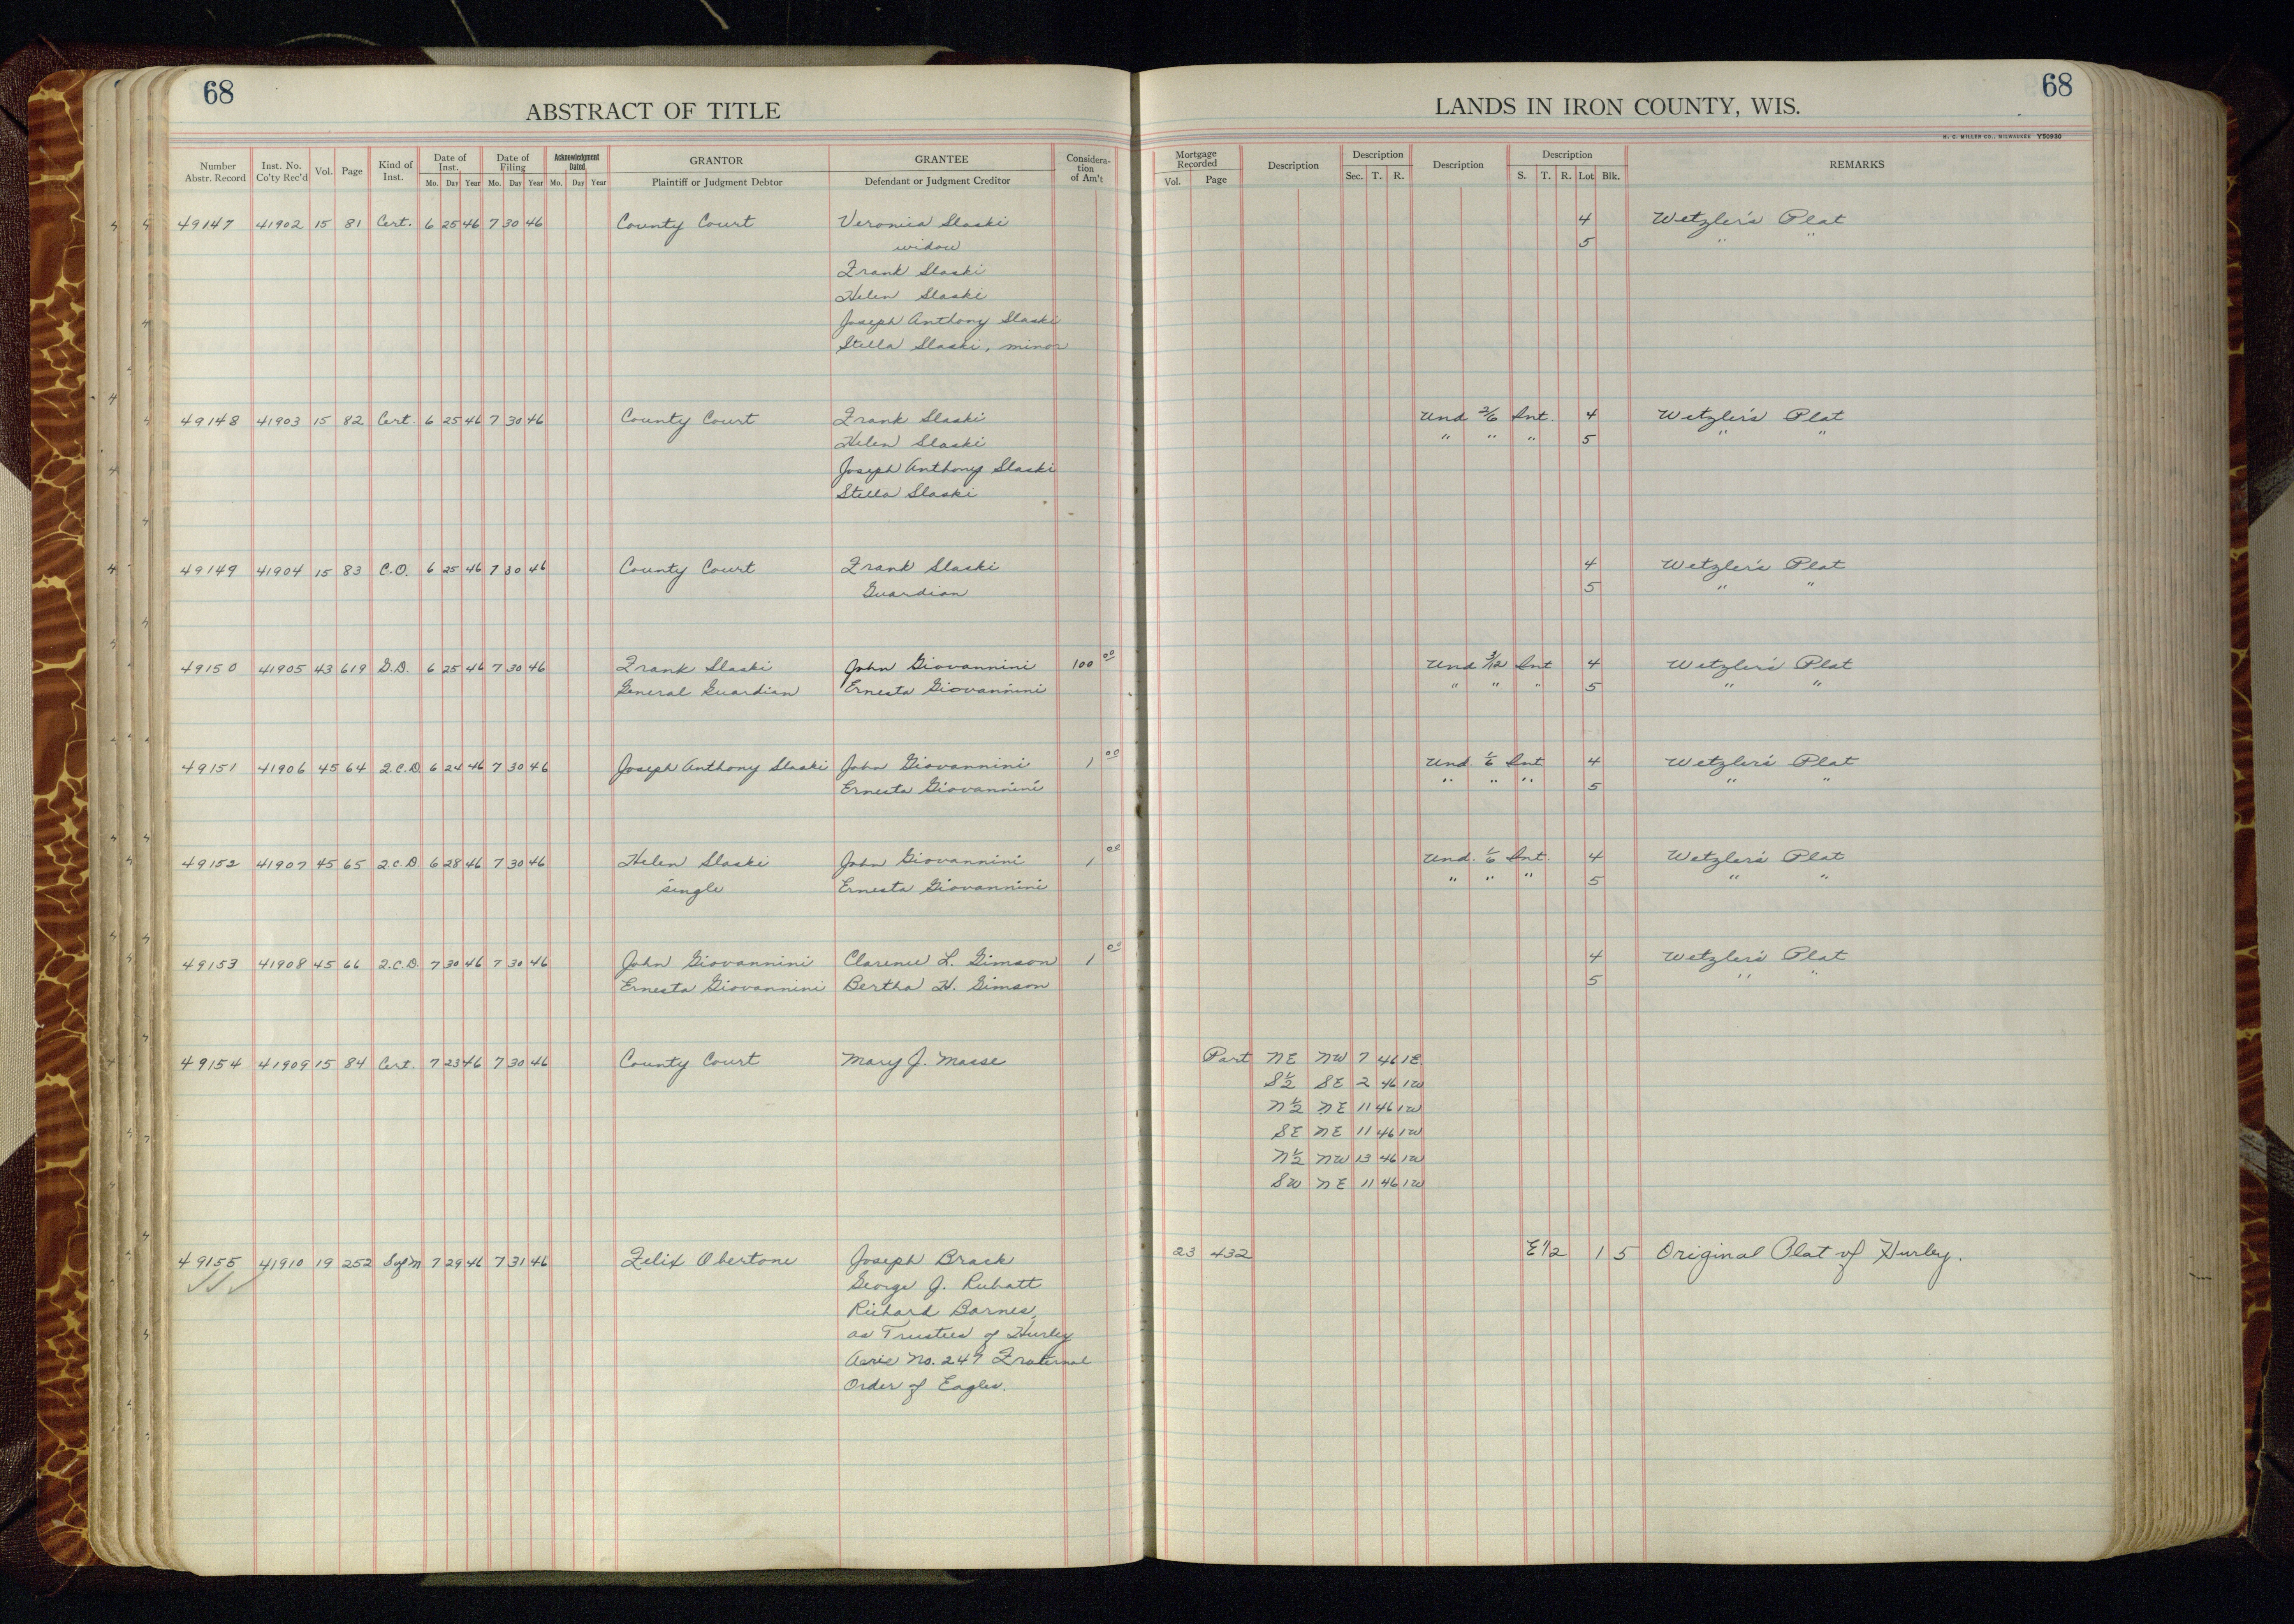 68
68
ABSTRACT OF TITLE
LANDS IN IRON COUNTY, WIS.
H. C. MILLER CO., MILWAUKEE Y50930
Number Abstr. Record Inst. No. Co'ty Rec'd Vol. Page Kind of Inst. Date of Inst. Mo. Day Year Date of Filing Mo. Day Year Acknowledgment Dated Mo. Day Year GRANTOR Plaintiff or Judgment Debtor GRANTEE Defendant or Judgment Creditor Consideration of Am't Mortgage Recorded Vol. Page Description Description Sec. T. R. Description Description S. T. R. Lot Blk. REMARKS
49147 41902 15 81 Cert. 6 25 46 7 30 46 County Court Veronica Slaski 4 Wetzler's Plat
widow 5 " "
Frank Slaski
Helen Slaski
Joseph Anthony Slaski
Stella Slaski, minor
49148 41903 15 82 Cert. 6 25 46 7 30 46 County Court Frank Slaski Und 2/6 Int. 4 Wetzler's Plat
Helen Slaski " " " 5 " "
Joseph Anthony Slaski
Stella Slaski
49149 41904 15 83 C.O. 6 25 46 7 30 46 County Court Frank Slaski 4 Wetzler's Plat
Guardian 5 " "
49150 41905 43 619 G.D. 6 25 46 7 30 46 Frank Slaski John Giovannini 100 00 Und 3/12 Int 4 Wetzler's Plat
General Guardian Ernesta Giovannini " " " 5 " "
49151 41906 45 64 Q.C.D. 6 24 46 7 30 46 Joseph Anthony Slaski John Giovannini 1 00 Und. 1/6 Int 4 Wetzler's Plat
Ernesta Giovannini " " " 5 " "
49152 41907 45 65 Q.C.D. 6 28 46 7 30 46 Helen Slaski John Giovannini 1 00 Und. 1/6 Int. 4 Wetzler's Plat
single Ernesta Giovannini " " " 5 " "
49153 41908 45 66 Q.C.D. 7 30 46 7 30 46 John Giovannini Clarence L. Gimson 1 00 4 Wetzler's Plat
Ernesta Giovannini Bertha H. Gimson 5 " "
49154 41909 15 84 Cert. 7 23 46 7 30 46 County Court Mary J. Masse Part NE NW 7 46 1E
S½ SE 2 46 1W
N½ NE 11 46 1W
SE NE 11 46 1W
N½ NW 13 46 1W
SW NE 11 46 1W
49155 41910 19 252 S of M 7 29 46 7 31 46 Felix Obertone Joseph Brack 23 432 E 1/2 1 5 Original Plat of Hurley.
George J. Rubatt
Richard Barnes,
as Trustees of Hurley
Aerie No. 247 Fraternal
Order of Eagles.